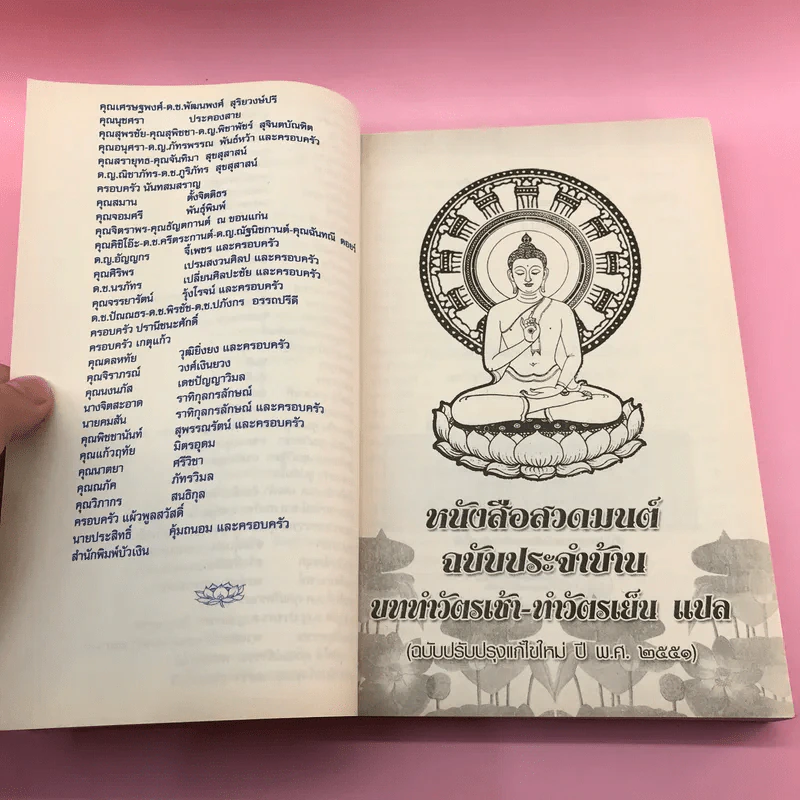 คุณเศรษฐพงศ์-ด.ช.พัฒนพงศ์ สุริยวงษ์ปรี
คุณนุชศรา ประคองสาย
คุณสุพรชัย-คุณสุพิชชา-ด.ญ.พิชาพัชร์ สุจินตบัณฑิต
คุณอนุศรา-ด.ญ.ภัทรพรรณ พันธ์หว้า และครอบครัว
คุณสรายุทธ-คุณจันทิมา สุขสุลาสน์
ด.ญ.ณิชาภัทร-ด.ช.ภูริภัทร สุขสุลาสน์
ครอบครัว นันทสมสราญ
คุณสมาน ตั้งจิตติธร
คุณจอมศรี พันธุ์พิมพ์
คุณจิตราพร-คุณธัญตกานต์ ณ ขอนแก่น
คุณคิชิโอ๊ะ-ด.ช.ศรีตระกานต์-ด.ญ.ณัฐนิชกานต์-คุณฉันทณี
ด.ญ.อัญญกร จี้เพชร และครอบครัว
คุณศิริพร เปรมสงวนศิลป และครอบครัว
ด.ช.นรภัทร เปลี่ยนศิลปะชัย และครอบครัว
คุณจรรยารัตน์ รุ้งโรจน์ และครอบครัว
ด.ช.ปัณณธร-ด.ช.พิรชัช-ด.ช.ปภังกร อรรถปรีดี
ครอบครัว ปรานีชนะศักดิ์
ครอบครัว เกตุแก้ว
คุณดลหทัย วุฒิยิ่งยง และครอบครัว
คุณจิราภรณ์ วงศ์เงินยวง
คุณนงนภัส เดชปัญญาวิมล
นางจิตสะอาด ราทิกุลกรลักษณ์
นายคมสัน ราทิกุลกรลักษณ์ และครอบครัว
คุณพิชชานันท์ สุพรรณรัตน์ และครอบครัว
คุณแก้วฤทัย มิตรอุดม
คุณนาตยา ศรีวิชา
คุณณภัค ภัทรวิมล
คุณวิภากร สนธิกุล
ครอบครัว แผ้วพูลสวัสดิ์
นายประสิทธิ์ คุ้มถนอม และครอบครัว
สำนักพิมพ์บัวเงิน
หนังสือสวดมนต์
ฉบับประจำบ้าน
บททำวัตรเช้า-ทำวัตรเย็น แปล
(ฉบับปรับปรุงแก้ไขใหม่ ปี พ.ศ. ๒๕๕๑)